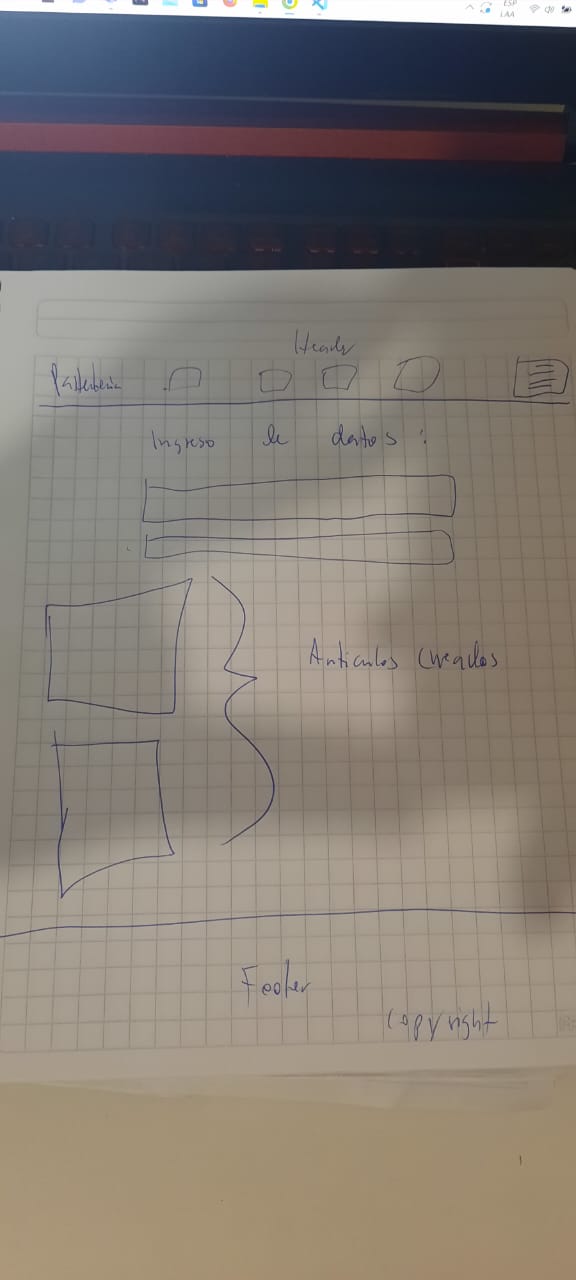 ESP
LAA
Header
Pastelería
Ingreso de datos :
Articulos creados
Footer
Copyright